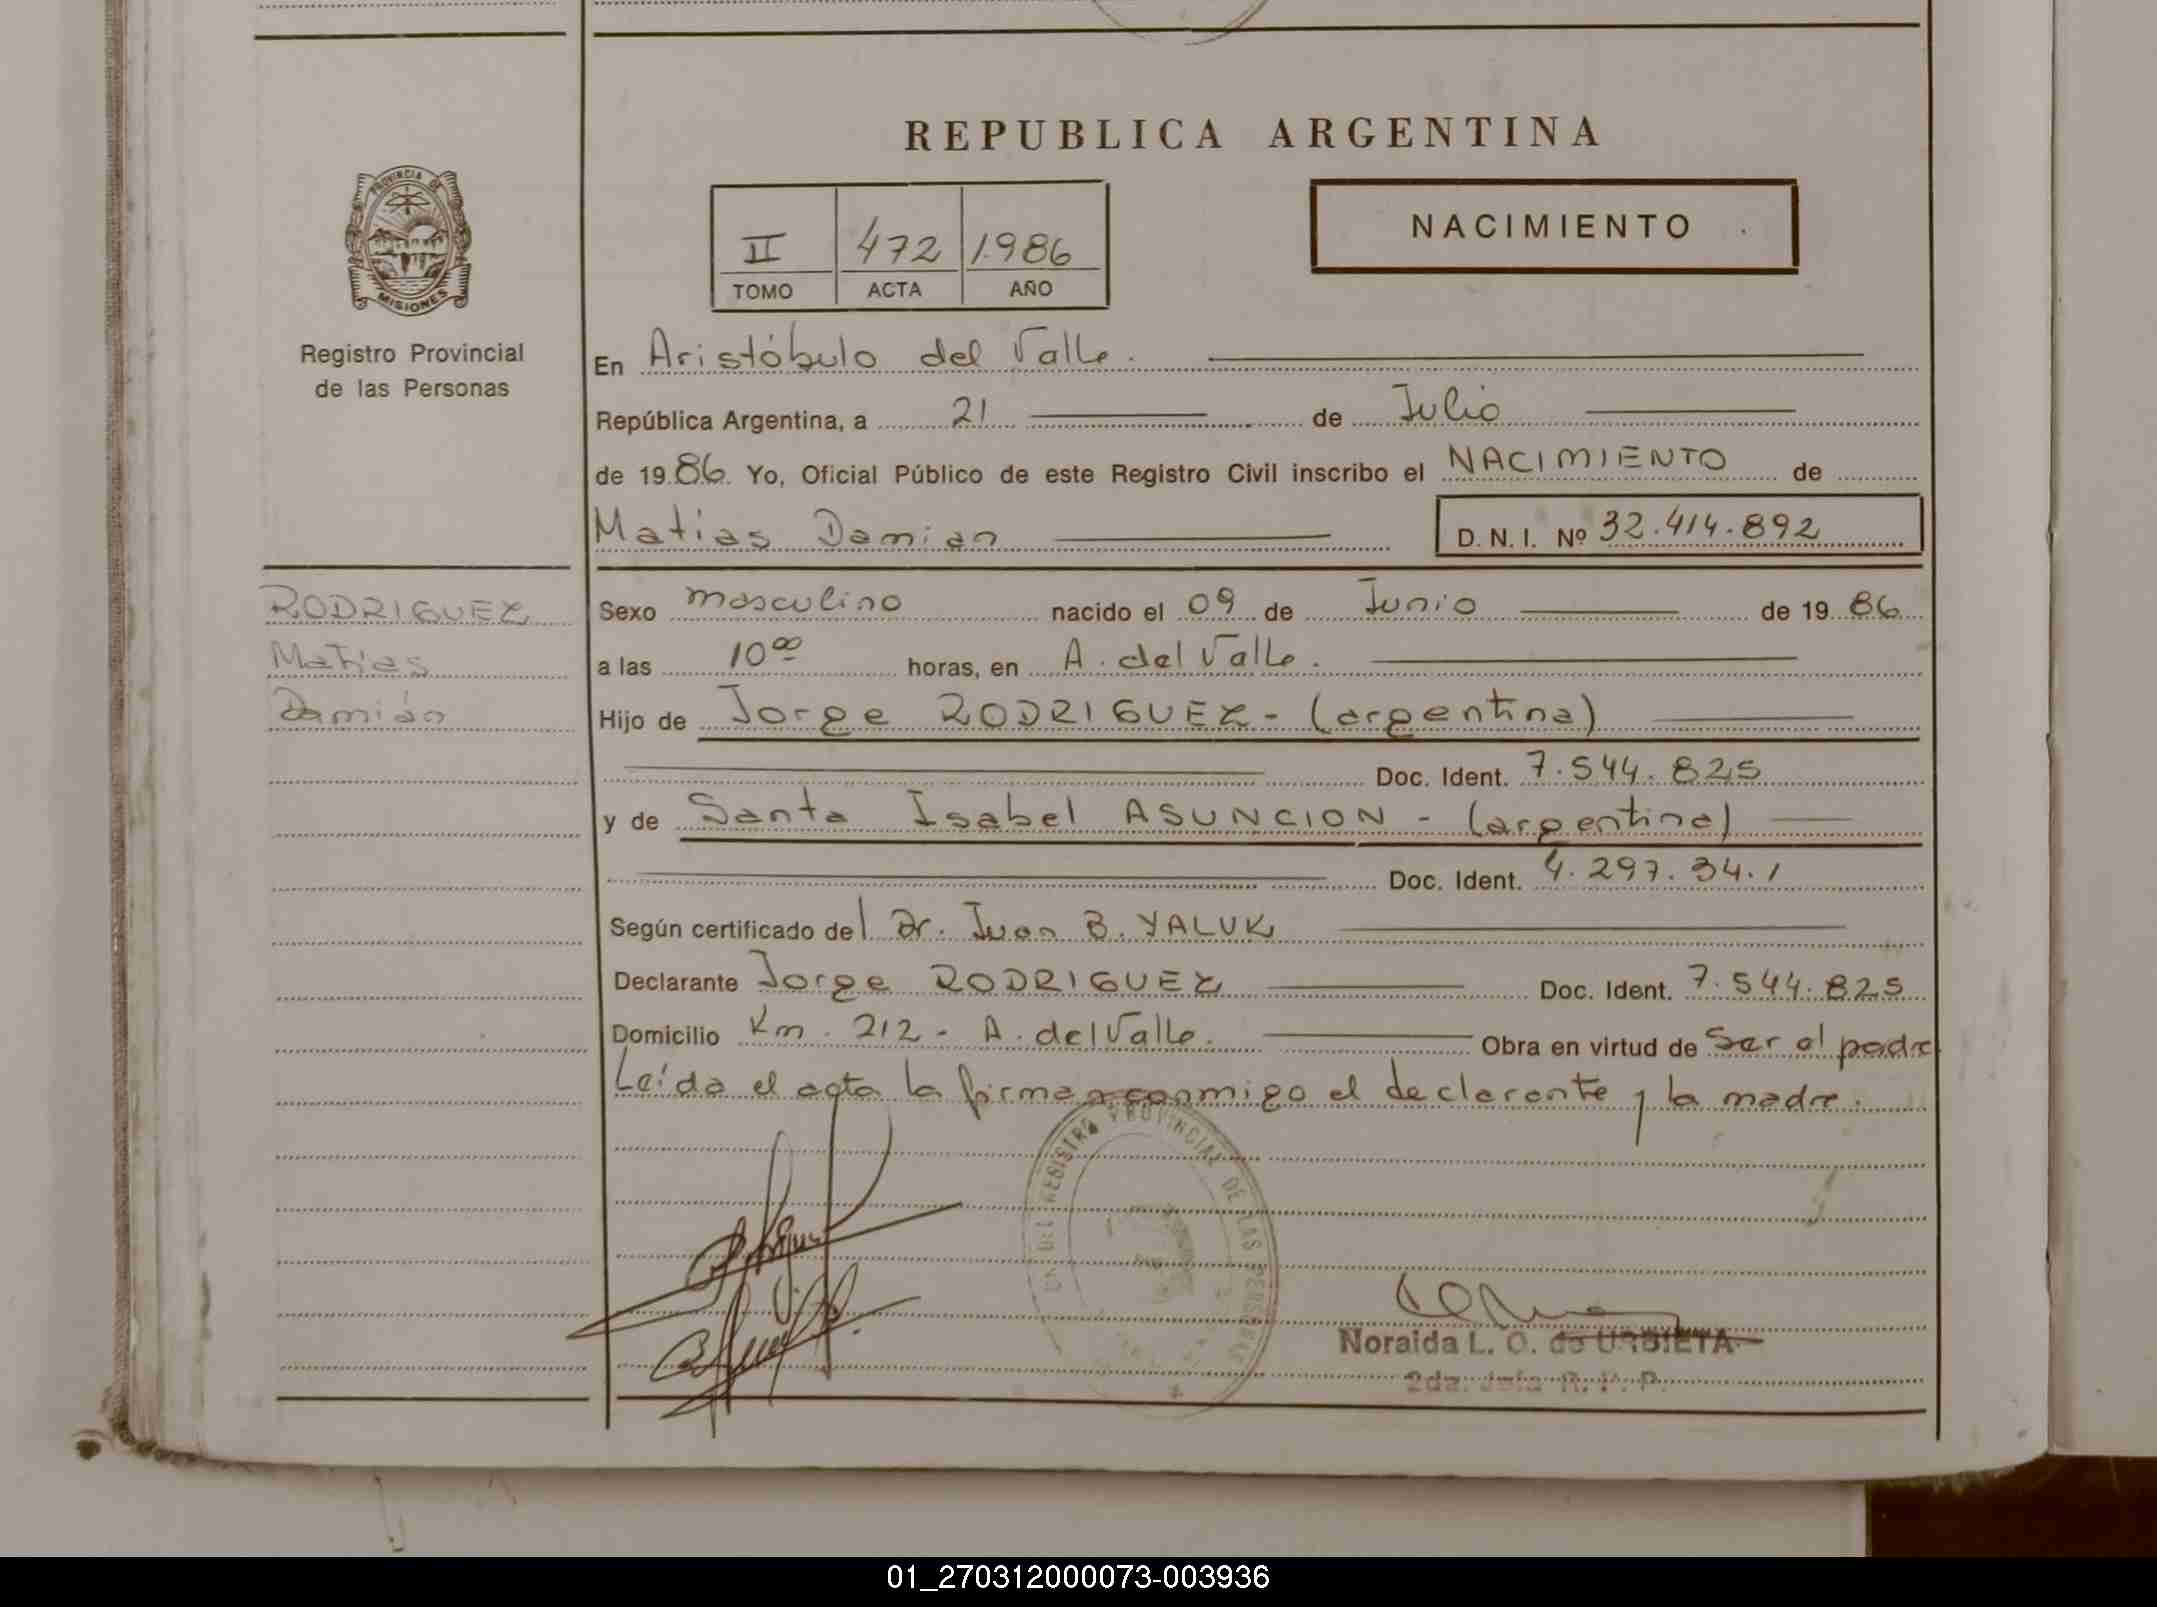 REPUBLICA ARGENTINA
PROVINCIA DE
MISIONES
Registro Provincial
de las Personas
II 472 1986
TOMO ACTA AÑO
NACIMIENTO
En Aristóbulo del Valle.
República Argentina, a 21 de Julio
de 1986. Yo, Oficial Público de este Registro Civil inscribo el NACIMIENTO de
Matias Damian
D. N. I. Nº 32.414.892
RODRIGUEZ
Matias
Damián
Sexo masculino nacido el 09 de Junio de 1986
a las 10⁰⁰ horas, en A. del Valle.
Hijo de Jorge RODRIGUEZ - (argentina)
Doc. Ident. 7.544.825
y de Santa Isabel ASUNCION - (argentina)
Doc. Ident. 4.297.34.1
Según certificado del Dr. Juan B. YALUK
Declarante Jorge RODRIGUEZ Doc. Ident. 7.544.825
Domicilio Km. 212 - A. del Valle. Obra en virtud de ser el padre
Leída el acta la firman conmigo el declarante y la madre.
DEL REGISTRO PROVINCIAL DE LAS PERSONAS
Noraida L. O. de URBIETA
2da. Jefa R. P. P.
01_270312000073-003936